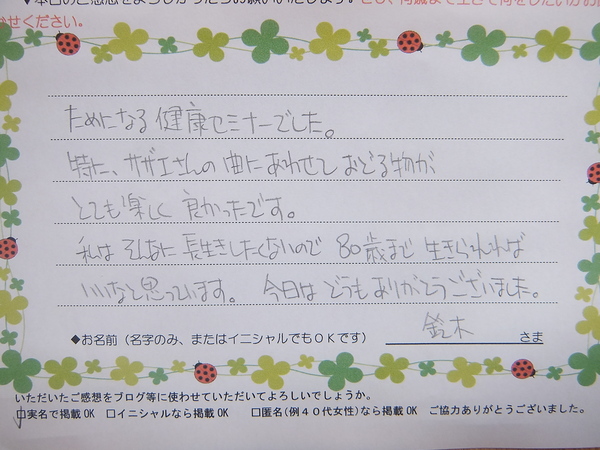 せください。
ためになる健康セミナーでした。
特に、サザエさんの曲にあわせておどる物が
とても楽しく良かったです。
私はそんなに長生きしたくないので80歳まで生きられれば
いいなと思っています。 今日はどうもありがとうございました。
◆お名前(名字のみ、またはイニシャルでもOKです) 鈴木 さま
いただいたご感想をブログ等に使わせていただいてよろしいでしょうか。
☑実名で掲載OK □イニシャルなら掲載OK □匿名(例40代女性)なら掲載OK ご協力ありがとうございました。